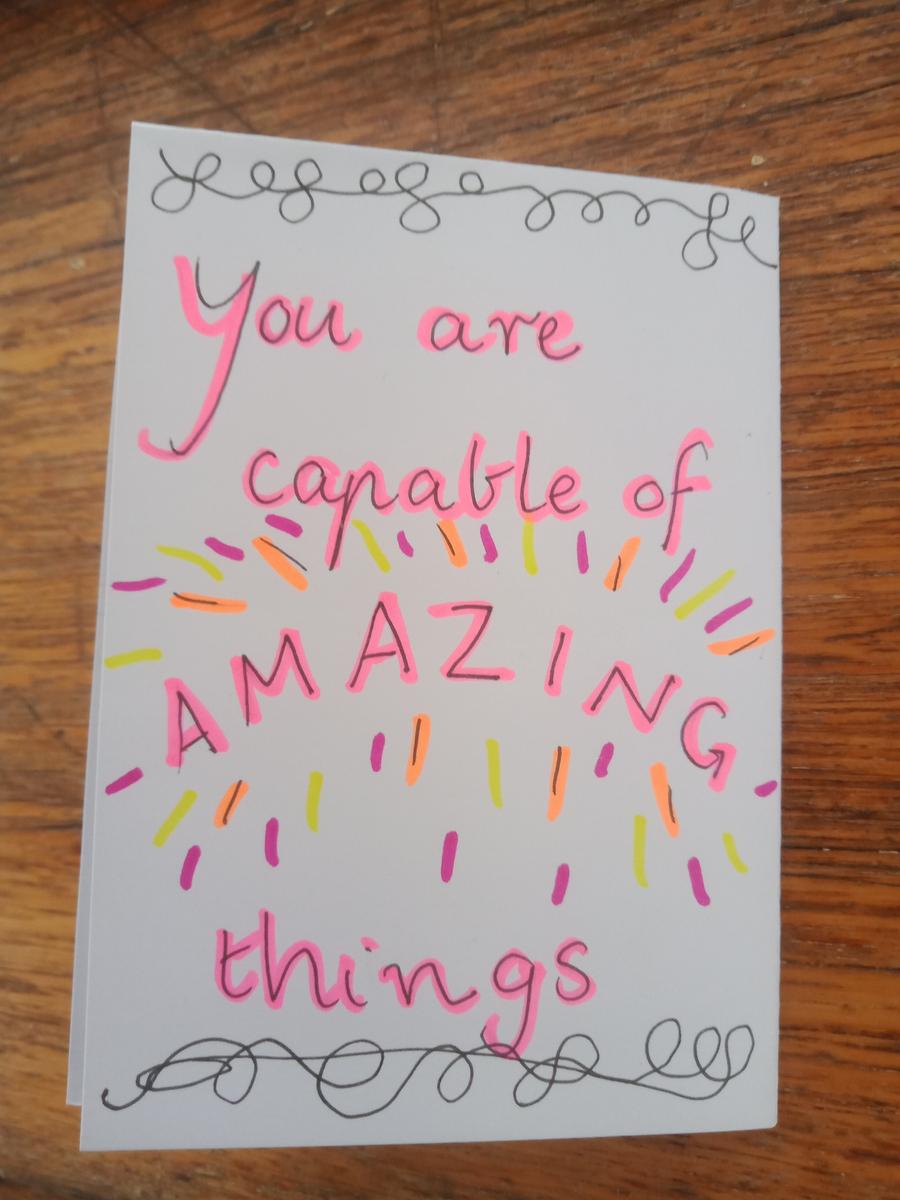 You are
capable of
AMAZING
things